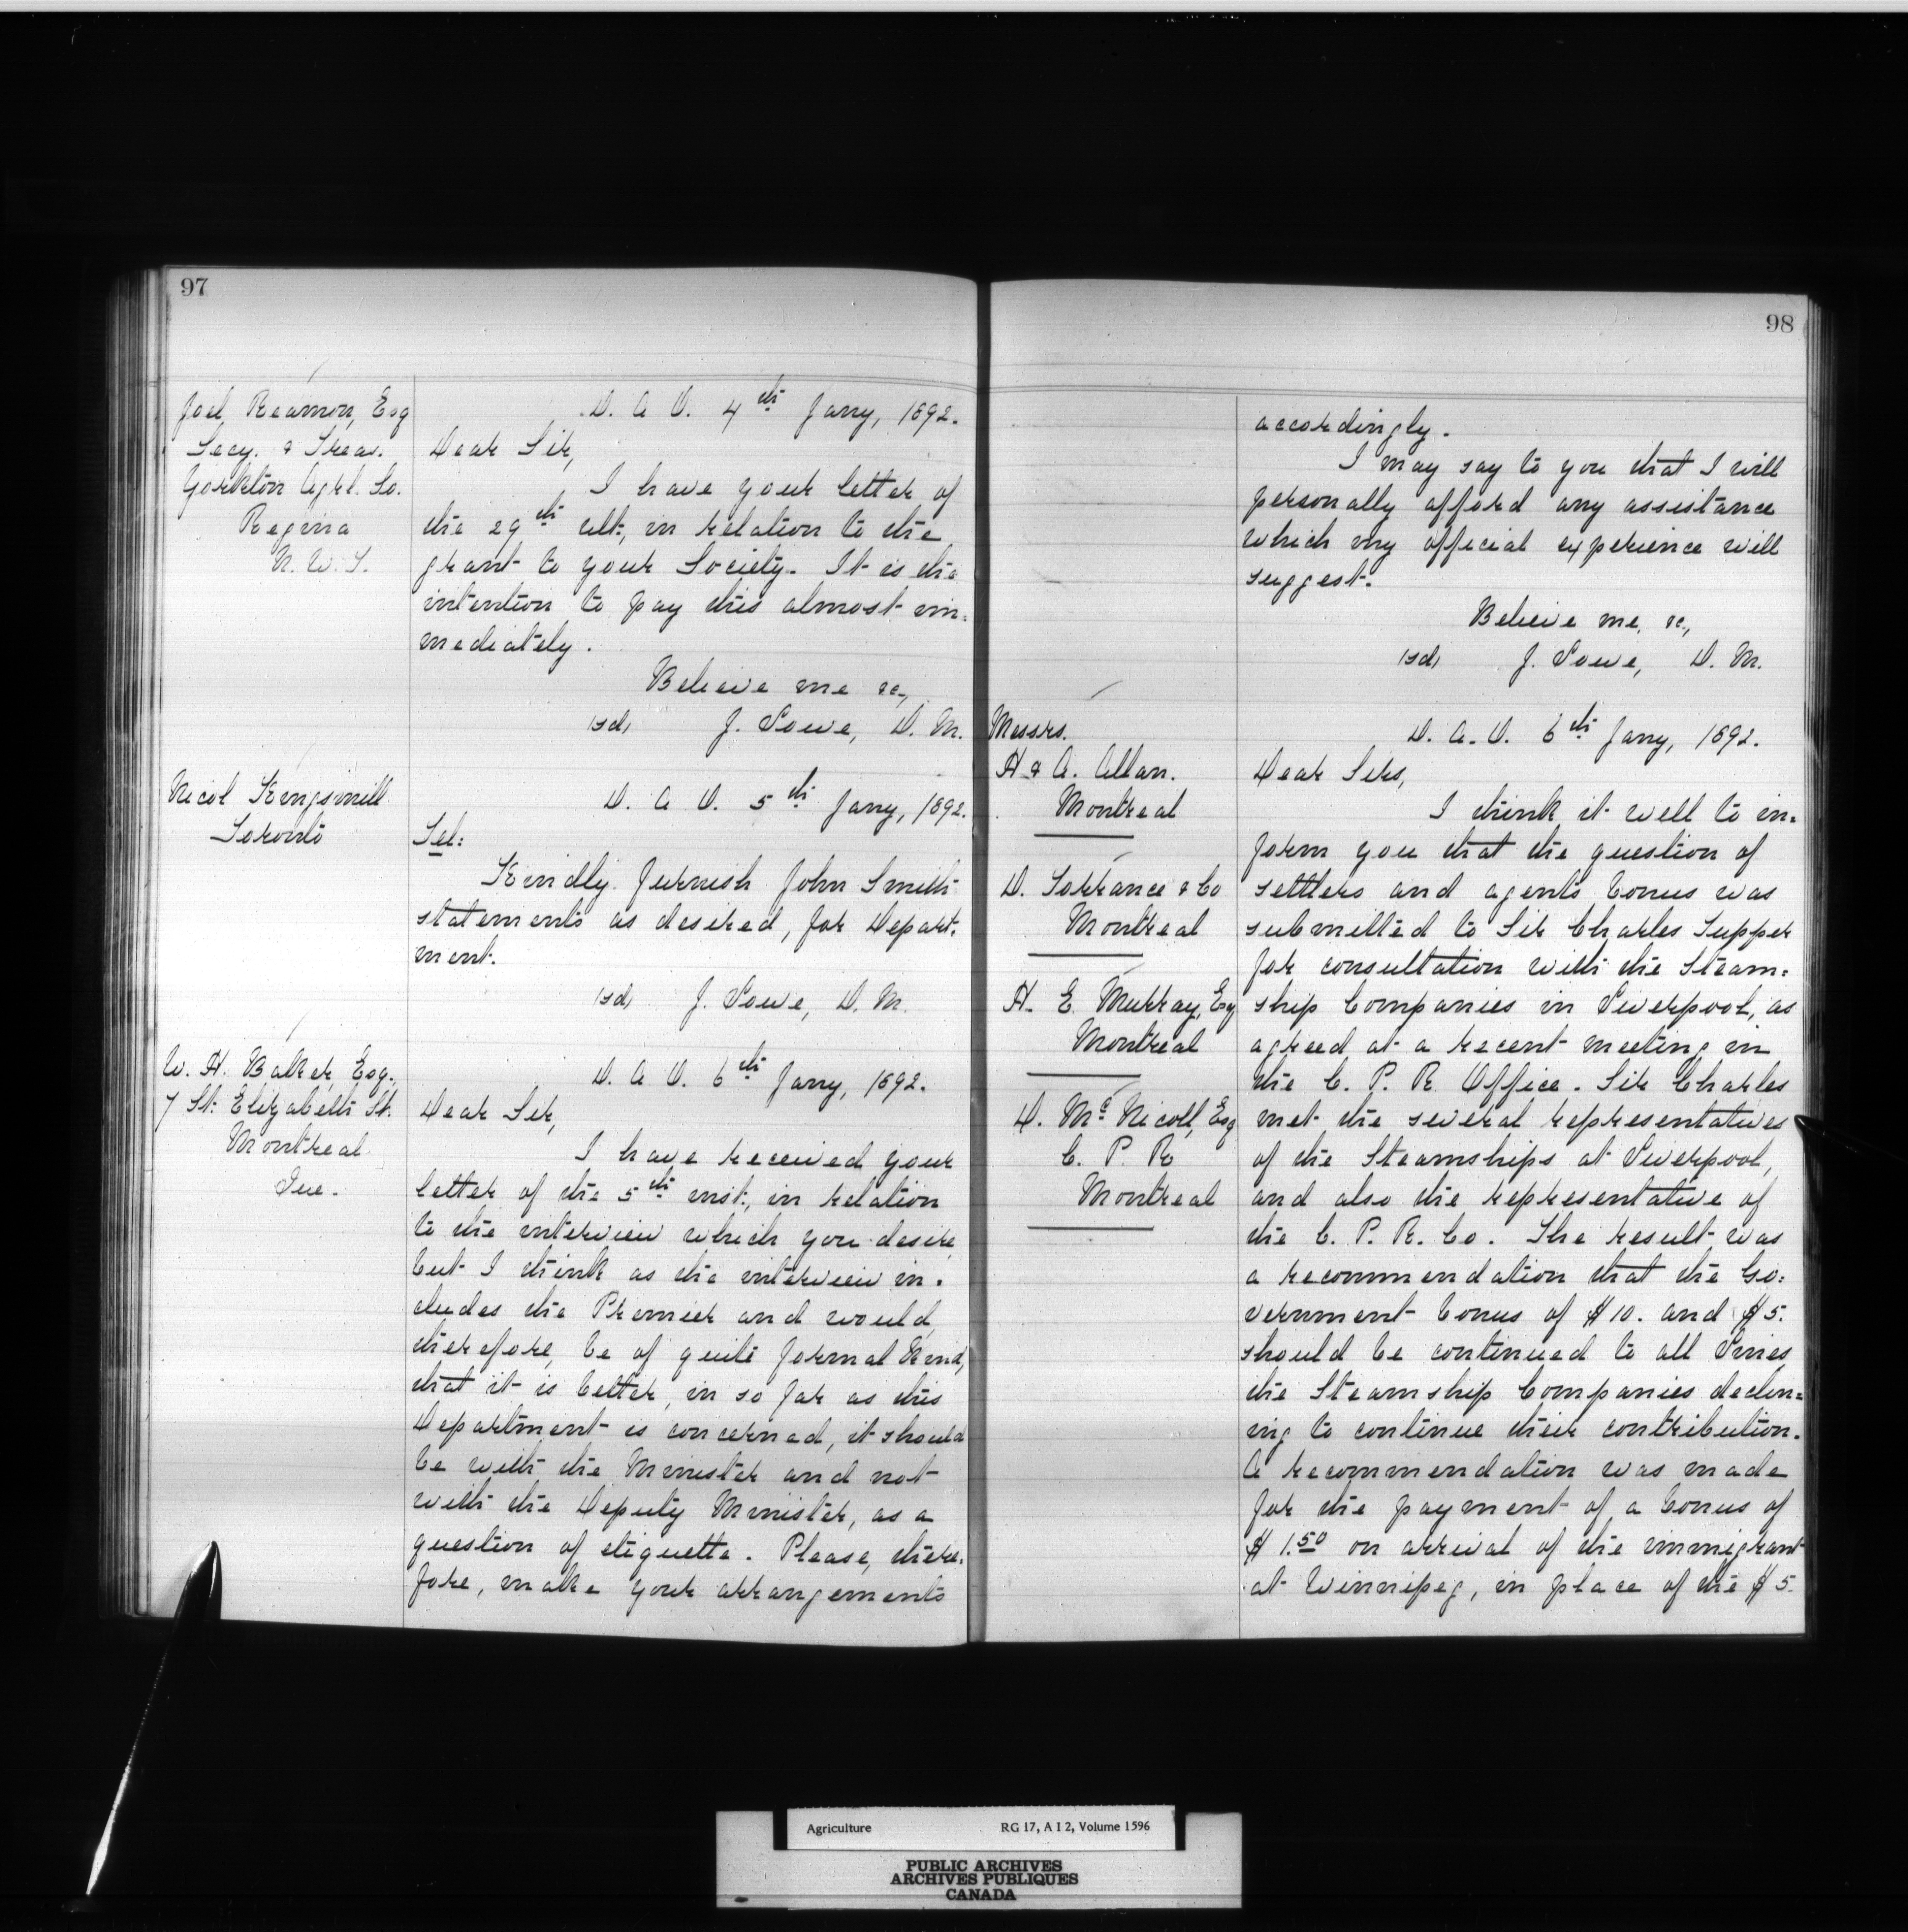 97
Joel Reamon, Esq
Secy. & Treas.
Yorkton Agrl. So.
Regina
N. W. T.
D. A. O. 4th Jany, 1892.
Dear Sir,
I have your letter of
the 29th ult., in relation to the
grant to your Society. It is the
intention to pay this almost im=
mediately.
Believe me &c.,
(sd) J. Lowe, D. M.
Nicol Kingsmill
Toronto
D. A. O. 5th Jany, 1892.
Tel:
Kindly furnish John Smith
statements as desired, for Depart=
ment.
(sd) J. Lowe, D. M.
W. H. Baker, Esq.,
7 St. Elizabeth St.
Montreal
Que.
D. A. O. 6th Jany, 1892.
Dear Sir,
I have received your
letter of the 5th inst., in relation
to the interview which you desire,
but I think as the interview in=
cludes the Premier and would,
therefore, be of quite formal kind,
that it is better, in so far as this
Department is concerned, it should
be with the Minister and not
with the Deputy Minister, as a
question of etiquette. Please, there=
fore, make your arrangements
98
accordingly.
I may say to you that I will
personally afford any assistance
which my official experience will
suggest.
Believe me, &c.,
(sd) J. Lowe, D. M.
Messrs.
H & A. Allan.
Montreal
D. Torrance & Co
Montreal
H. E. Murray, Esq
Montreal
D. McNicoll, Esq
C. P. R
Montreal
D. A. O. 6th Jany, 1892.
Dear Sirs,
I think it well to in=
form you that the question of
settlers and agents bonus was
submitted to Sir Charles Tupper
for consultation with the Steam=
ship Companies in Liverpool, as
agreed at a recent meeting in
the C. P. R. Office. Sir Charles
met the several representatives
of the Steamships at Liverpool,
and also the representative of
the C. P. R. Co. The result was
a recommendation that the Go=
vernment bonus of $10. and $5.
should be continued to all Lines,
the Steamship Companies declin=
ing to continue their contribution.
A recommendation was made
for the payment of a bonus of
$1.50 on arrival of the immigrant
at Winnipeg, in place of the $5.
Agriculture RG 17, A I 2, Volume 1596
PUBLIC ARCHIVES
ARCHIVES PUBLIQUES
CANADA